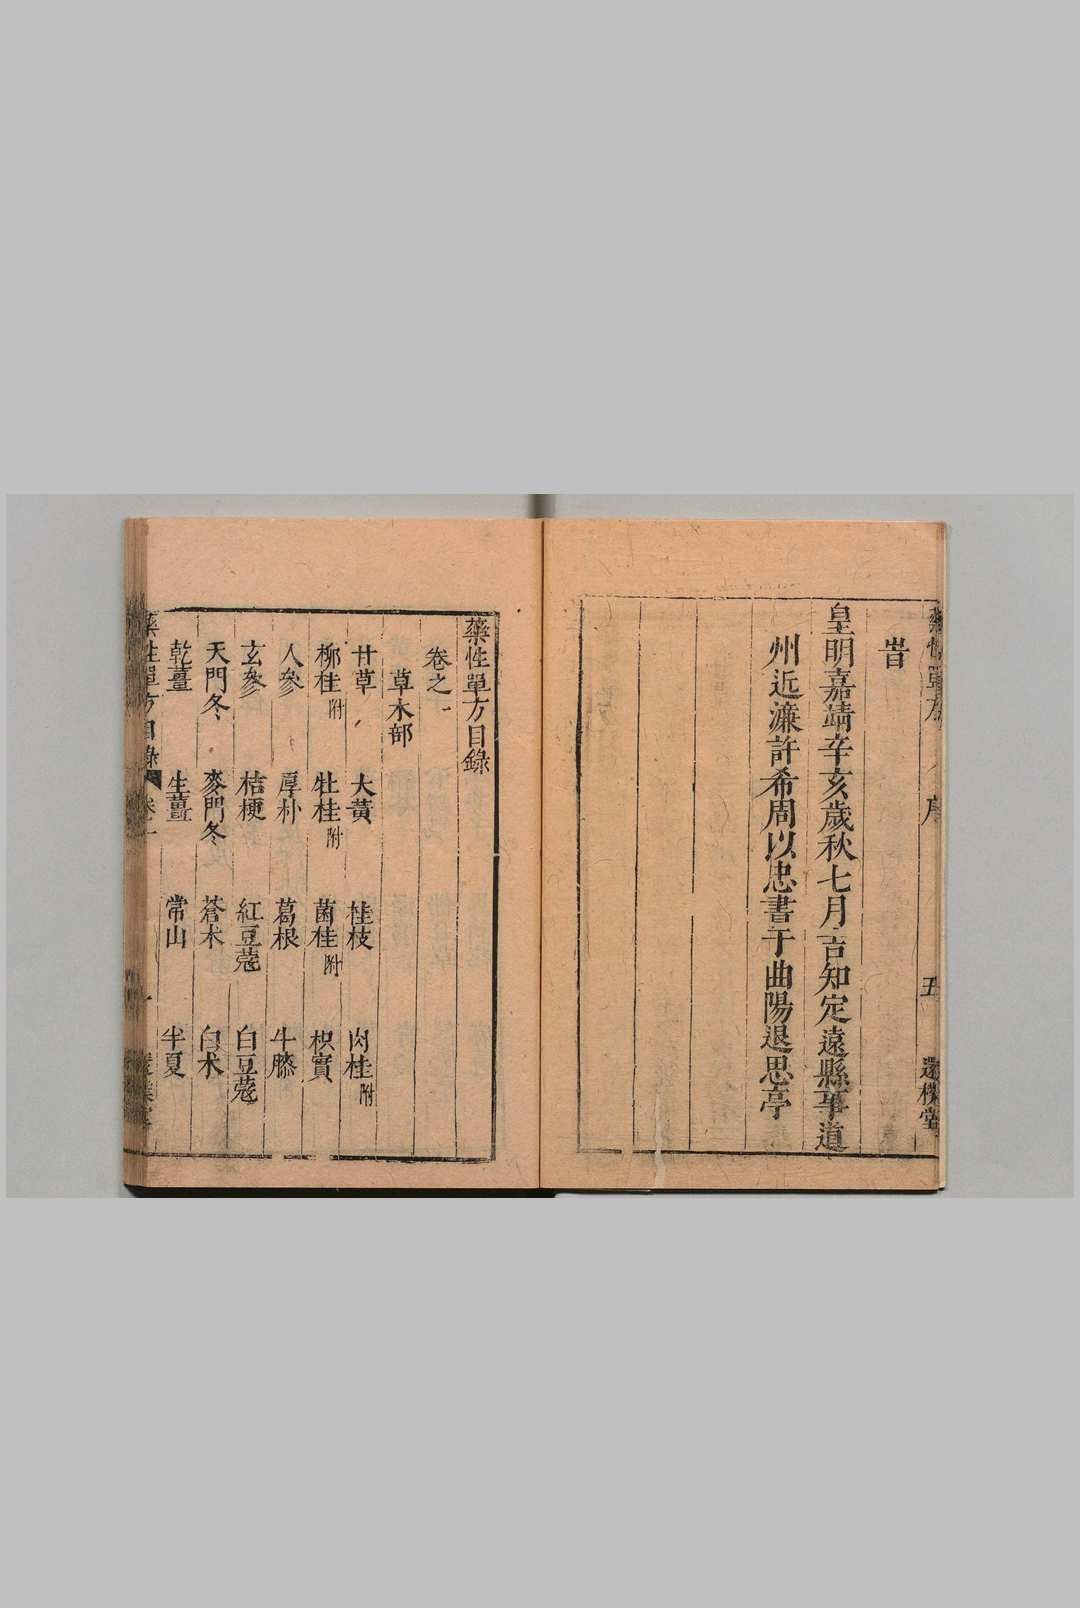 藥性單方 序 五 還樸堂
旹
皇明嘉靖辛亥歲秋七月吉知定遠縣事道
州近濂許希周以忠書于曲陽退思亭
藥性單方目錄
卷之一
草木部
甘草 大黃 桂枝 肉桂附
柳桂附 牡桂附 菌桂附 枳實
人參 厚朴 葛根 牛膝
玄參 桔梗 紅豆蔻 白豆蔻
天門冬 麥門冬 蒼术 白术
乾薑 生薑 常山 半夏
藥性單方目錄 卷一 一